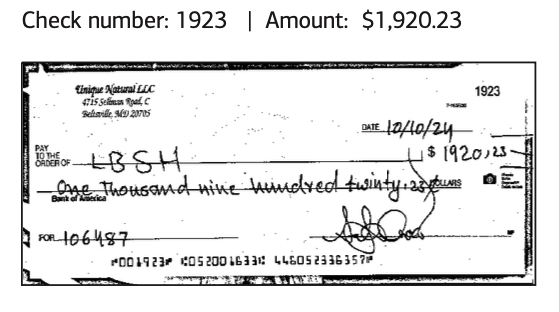 Check number: 1923 | Amount: $1,920.23
Unique Natural LLC
4715 Sellman Road, C
Beltsville, MD 20705
1923
DATE 10/10/24
PAY
TO THE
ORDER OF LBSH $ 1920,23
One Thousand nine hundred twinty, 23/ DOLLARS
Bank of America
FOR 106487
⑈001923⑈ ⑆052001633⑆ 446052336357⑈